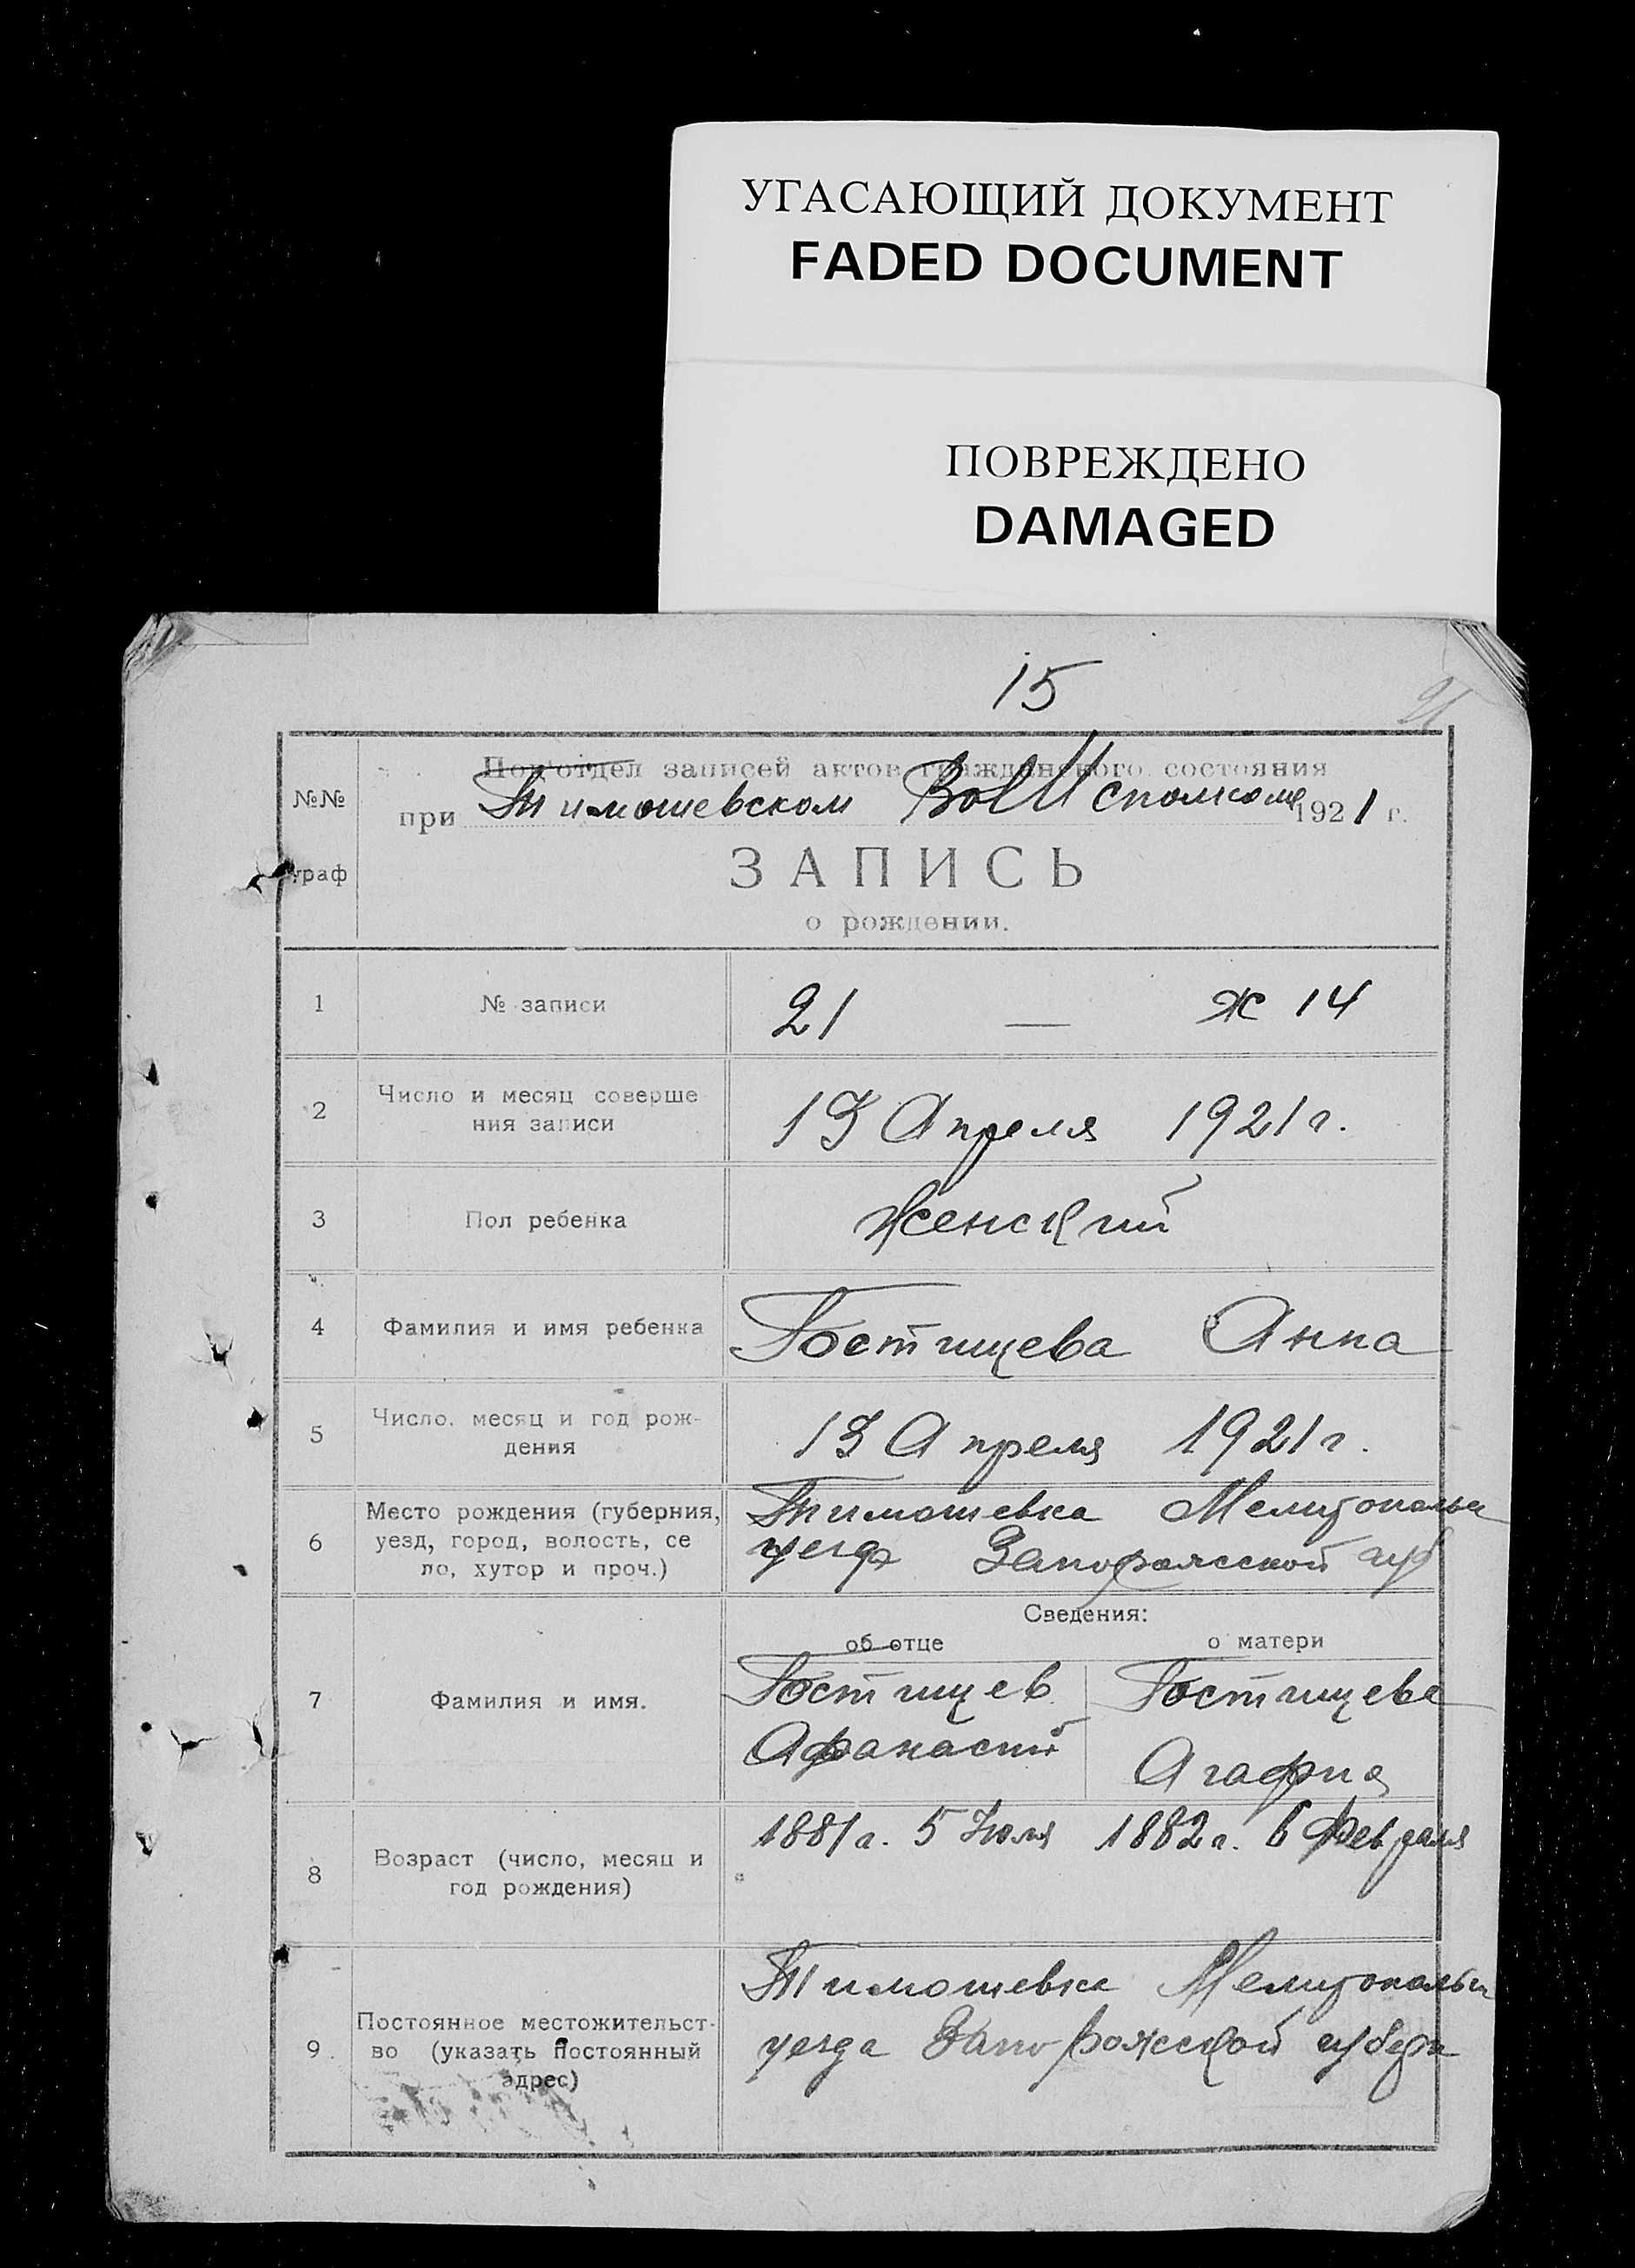 УГАСАЮЩИЙ ДОКУМЕНТ
FADED DOCUMENT
ПОВРЕЖДЕНО
DAMAGED
15
21
№№
граф
Под'отдел записей актов гражданского состояния
при Тимошевском ВолИсполкоме 1921 г.
ЗАПИСЬ
о рождении.
1 № записи 21 — Ж 14
2 Число и месяц соверше
ния записи
13 Апреля 1921 г.
3 Пол ребенка Женский
4 Фамилия и имя ребенка Гостищева Анна
5 Число, месяц и год рож-
дения
13 Апреля 1921 г.
6 Место рождения (губерния,
уезд, город, волость, се
ло, хутор и проч.)
Тимошевка Мелитопольск
уезда Запорожской губ
Сведения:
об отце о матери
7 Фамилия и имя.
Гостищев
Афанасий
Гостищева
Агафия
8 Возраст (число, месяц и
год рождения)
1881 г. 5 Июля 1882 г. 6 Февраля
9. Постоянное местожительст-
во (указать постоянный
адрес)
Тимошевка Мелитопольск
уезда Запорожской губерн